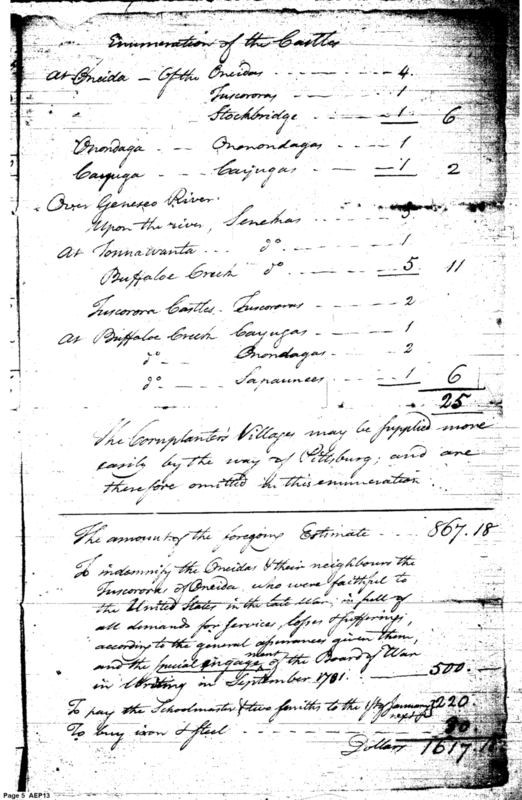 Enumeration of the Castles
At Oneida – Of the Oneidas - - - - - - - 4.
" Tuscororas - - - - - - 1
" Stockbridge - - - - - 1 6
Onondaga - - Ononondagas - - - 1
Cayuga - - - Cayugas - - - - - 1 2
Over Genesee River.
Upon the river, Senekas - - - - - 5
At Tonnawanta - - - do - - - - - 1
Buffaloe Creek do - - - - - 5 11
Tuscorora Castles. Tuscororas - - - 2
At Buffaloe Creek Cayugas - - - 1
do - - - - Onondagas - - - 2
do - - - - Sapaunees - - - 1 6
25
The Cornplanter's Villages may be supplied more
easily by the way of Pittsburg; and are
therefore omitted in this enumeration
The amount of the foregoing Estimate - - - 867.18
To indemnify the Oneidas & their neighbours the
Tuscororas of Oneida, who were faithful to
the United States in the late War, in full of
all demands for services, losses & sufferings,
according to the general assurances given them,
and the special engagement of the Board of War
in Writing in September 1781. - - - 500. -
To pay the Schoolmaster & two smiths to the 1st of January next 220
To buy iron & steel - - - - - - - 30.
Dollars 1617.18